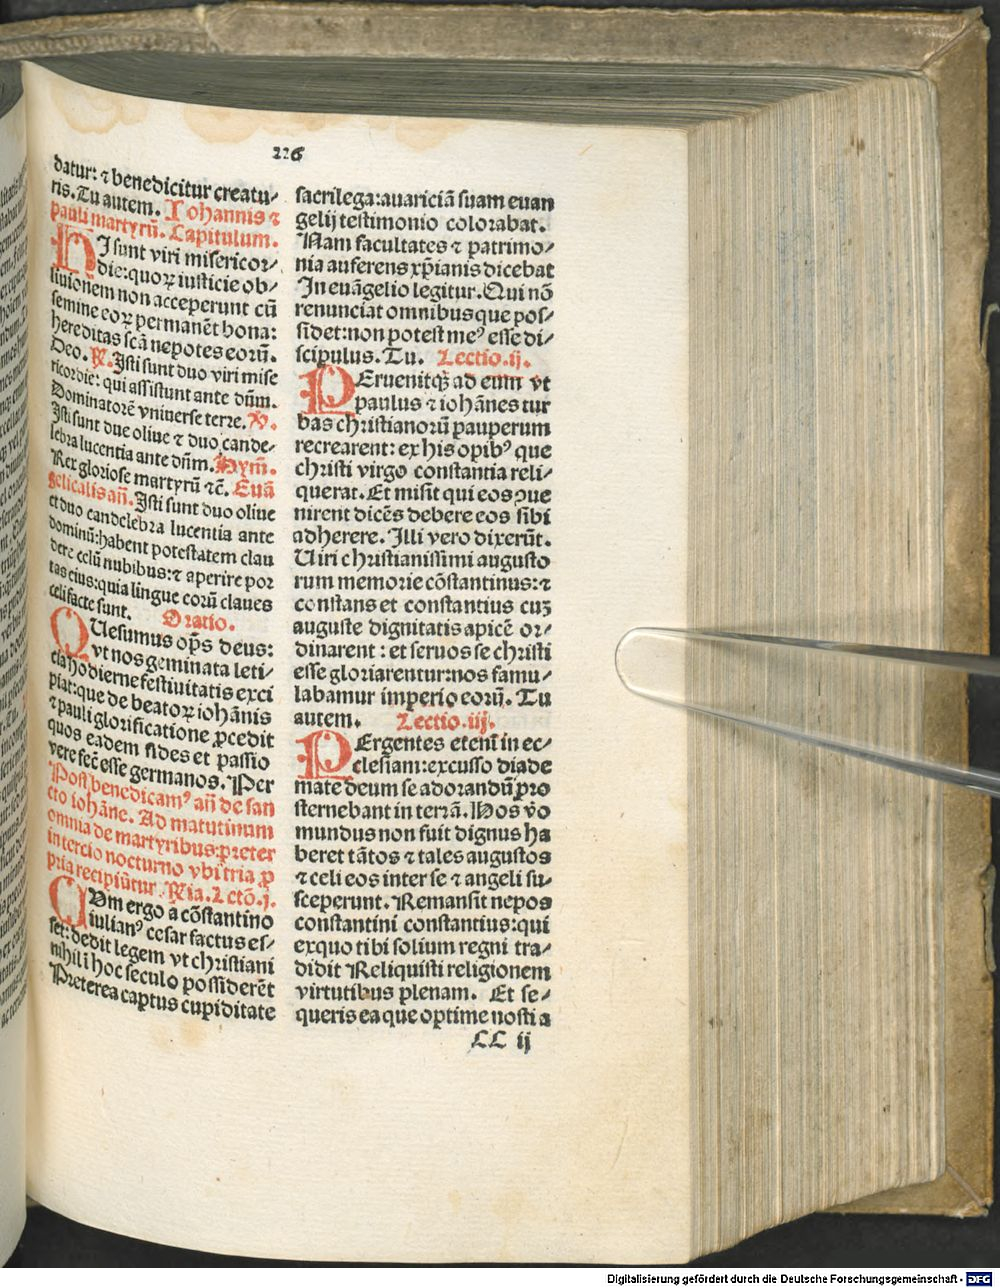 226
datur: ⁊ benedicitur creatu⸗
ris. Tu autem. Iohannis ⁊
pauli martyrũ. Capitulum.
HI sunt viri misericor⸗
die: quoꝝ iusticie ob⸗
liuionẽm non acceperunt cũ
semine eoꝝ permanẽt bona:
hereditas scã nepotes eorũ.
Deo. ℟. Isti sunt duo viri mise
ricordie: qui assistunt ante dñm.
Dominatorẽ vniuerse terre. ℣.
Isti sunt due oliue ⁊ duo cande⸗
lebra lucentia ante dñm. Hym̃.
Rex gloriose martyrũ ⁊c̃. Euã
gelicalis añ. Isti sunt duo oliue
et duo candelebra lucentia ante
dominũ: habent potestatem clau
dere celũ nubibus: ⁊ aperire por
tas eius: quia lingue eorũ claues
celi facte sunt. Oratio.
QUesumus op̃s deus:
vt nos geminata leti⸗
cia hodierne festiuitatis exci
piat: que de beatoꝝ iohãnis
⁊ pauli glorificatione ꝓcedit
quos eadem fides et passio
vere fec̃ esse germanos. Per
Post benedicamꝰ añ de san
cto iohãne. Ad matutinum
omnia de martyribus: preter
in tercio nocturno vbi tria ꝓ
pria recipiũtur. Ria. Lctõ. j.
CUm ergo a cõstantino
iulianꝰ cesar factus es⸗
set: dedit legem vt christiani
nihil i hoc seculo possiderẽt
Preterea captus cupiditate
sacrilega: auariciã suam euan
gelij testimonio colorabat.
Nam facultates ⁊ patrimo⸗
nia auferens xp̃ianis dicebat
In euãgelio legitur. Qui nõ
renunciat omnibus que pos⸗
sidet: non potest meꝰ esse di⸗
scipulus. Tu. Lectio. ij.
PEruenitqꝫ ad eum vt
paulus ⁊ iohãnes tur
bas christianorũ pauperum
recrearent: ex his opibꝰ que
christi virgo constantia reli⸗
querat. Et misit qui eos ↄue
nirent dicẽs debere eos sibi
adherere. Illi vero dixerũt.
Uiri christianissimi augusto
rum memorie cõstantinus: ⁊
constans et constantius cuꝫ
auguste dignitatis apicẽ or⸗
dinarent: et seruos se christi
esse gloriarentur: nos famu⸗
labamur imperio eorũ. Tu
autem. Lectio. iij.
PErgentes etenĩ in ec⸗
clesiam: excusso diade
mate deum se adorandũ pro
sternebant in terrã. Hos ṽo
mundus non fuit dignus ha
beret tãtos ⁊ tales augustos
⁊ celi eos inter se ⁊ angeli su⸗
sceperunt. Remansit nepos
constantini constantius: qui
ex quo tibi solium regni tra⸗
didit Reliquisti religionem
virtutibus plenam. Et se⸗
queris ea que optime nosti a
LL ij
Digitalisierung gefördert durch die Deutsche Forschungsgemeinschaft - DFG